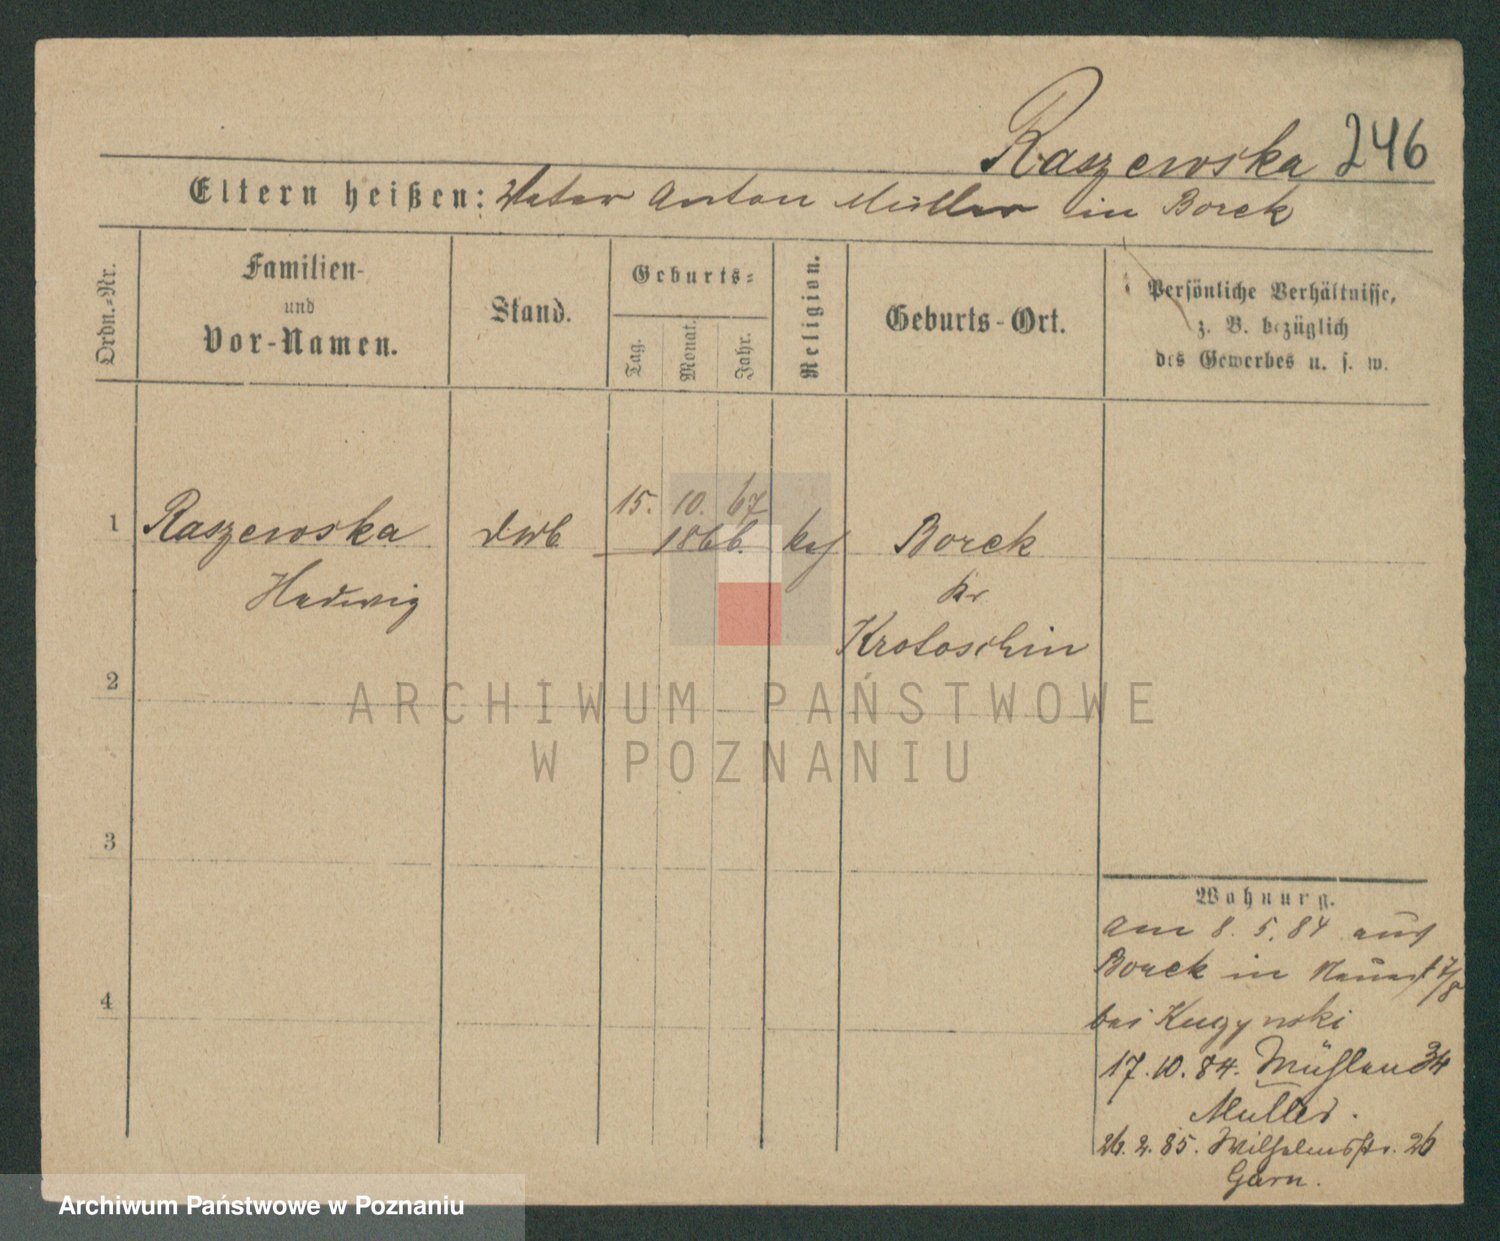 Raszewska 246
Eltern heißen: Vater Anton Müller in Borek
Ordn.-Nr.
Familien-
und
Vor-Namen.
Stand.
Geburts-
Tag.
Monat.
Jahr.
Religion.
Geburts-Ort.
Persönliche Verhältnisse,
z. B. bezüglich
des Gewerbes u. s. w.
15. 10. 67
1 Raszewska 1866. Borek
Hedwig Kr
Krotoschin
2
3
4
Wohnung.
Am 8. 5. 84 aus
Borek in
bei
17. 10. 84. Mühlen 34
Müller.
26. 2. 85. Wilhelmstr. 26
Garn.
ARCHIWUM PAŃSTWOWE
W POZNANIU
Archiwum Państwowe w Poznaniu